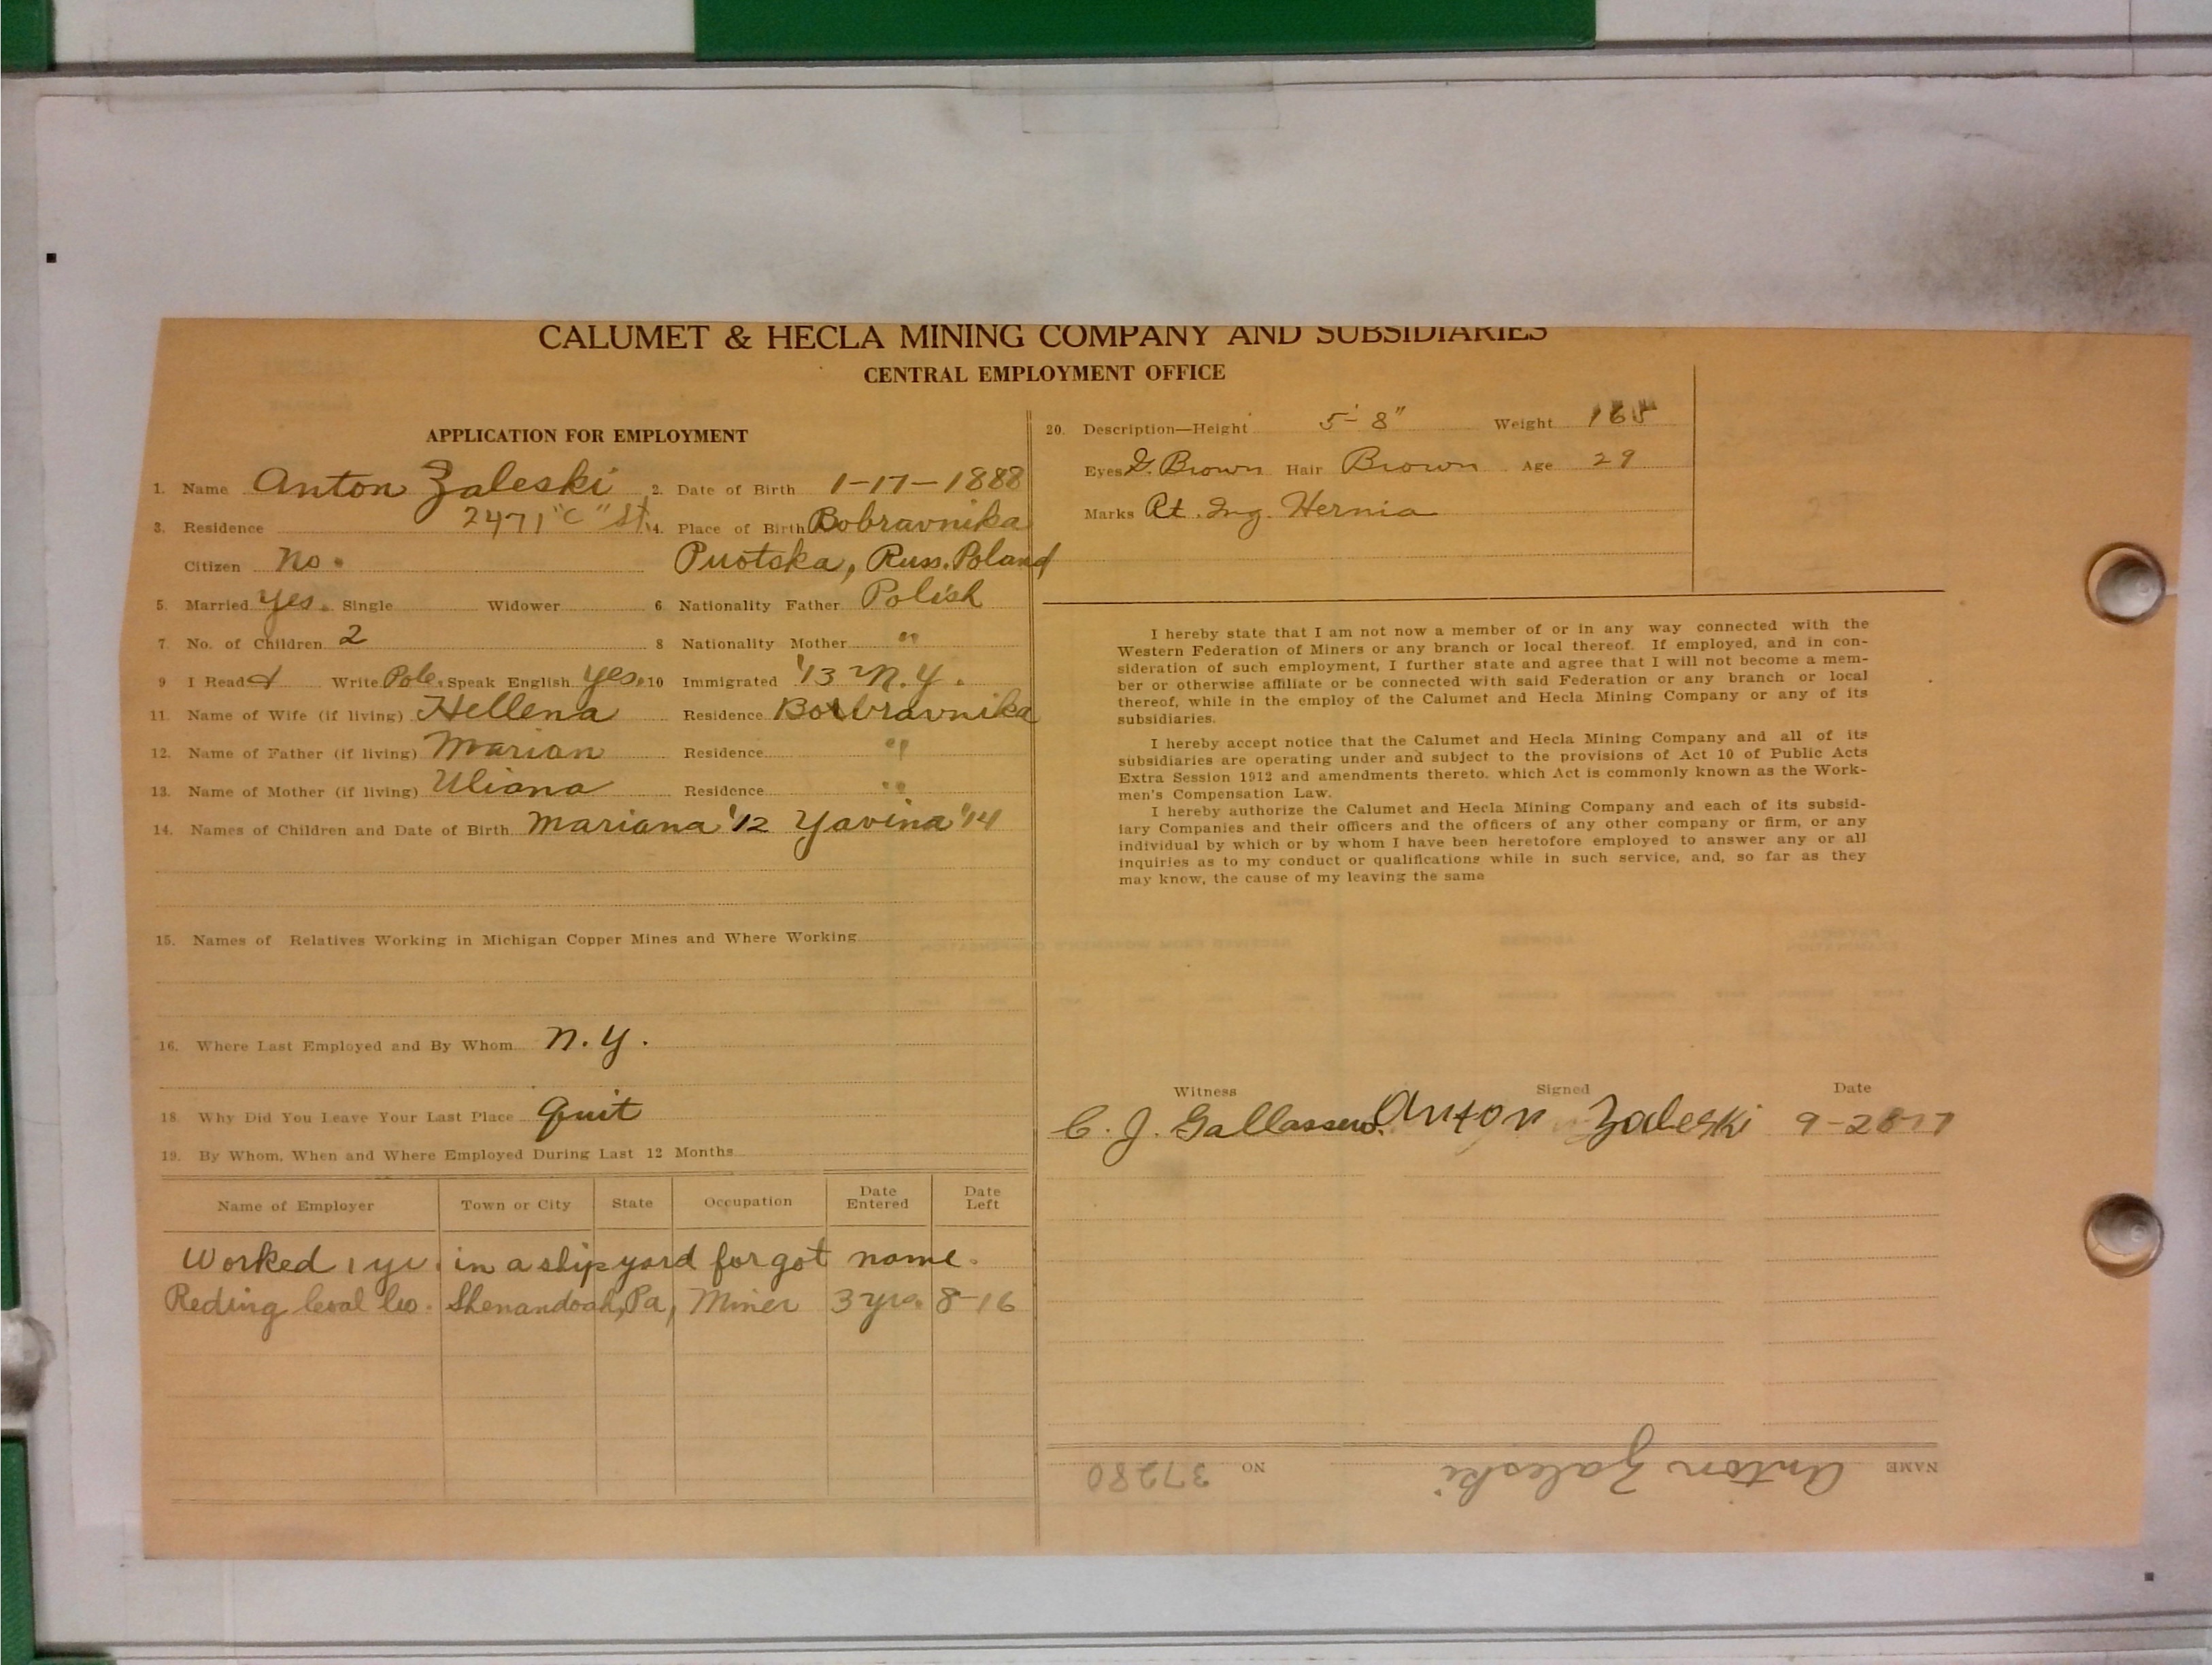 CALUMET & HECLA MINING COMPANY AND SUBSIDIARIES
CENTRAL EMPLOYMENT OFFICE
APPLICATION FOR EMPLOYMENT
1. Name Anton Zaleski 2. Date of Birth 1-17-1888
3. Residence 2471 "C" St. 4. Place of Birth Bobravnika
Citizen No. Puotska, Russ. Poland
5. Married yes. Single Widower 6 Nationality Father Polish
7. No. of Children 2 8 Nationality Mother "
9 I Read & Write Pole. Speak English yes. 10 Immigrated '13 N.Y.
11. Name of Wife (if living) Hellena Residence Borbravnika
12. Name of Father (if living) Marian Residence "
13. Name of Mother (if living) Uliana Residence "
14. Names of Children and Date of Birth Mariana '12 Yavina '14
15. Names of Relatives Working in Michigan Copper Mines and Where Working
16. Where Last Employed and By Whom N.Y.
18. Why Did You Leave Your Last Place Quit
19. By Whom, When and Where Employed During Last 12 Months
Name of Employer Town or City State Occupation Date Entered Date Left
Worked 1 yr. in a ship yard forgot name.
Reding Coal Co. Shenandoah, Pa, Miner 3 yrs. 8-16
20. Description—Height 5' 8" Weight 165
Eyes G. Brown Hair Brown Age 29
Marks Rt. Ing. Hernia
I hereby state that I am not now a member of or in any way connected with the
Western Federation of Miners or any branch or local thereof. If employed, and in con-
sideration of such employment, I further state and agree that I will not become a mem-
ber or otherwise affiliate or be connected with said Federation or any branch or local
thereof, while in the employ of the Calumet and Hecla Mining Company or any of its
subsidiaries.
I hereby accept notice that the Calumet and Hecla Mining Company and all of its
subsidiaries are operating under and subject to the provisions of Act 10 of Public Acts
Extra Session 1912 and amendments thereto. which Act is commonly known as the Work-
men's Compensation Law.
I hereby authorize the Calumet and Hecla Mining Company and each of its subsid-
iary Companies and their officers and the officers of any other company or firm, or any
individual by which or by whom I have been heretofore employed to answer any or all
inquiries as to my conduct or qualifications while in such service, and, so far as they
may know, the cause of my leaving the same
Witness Signed Date
C. J. Anton Zaleski 9-28-17
NAME Anton Zaleski NO 37280